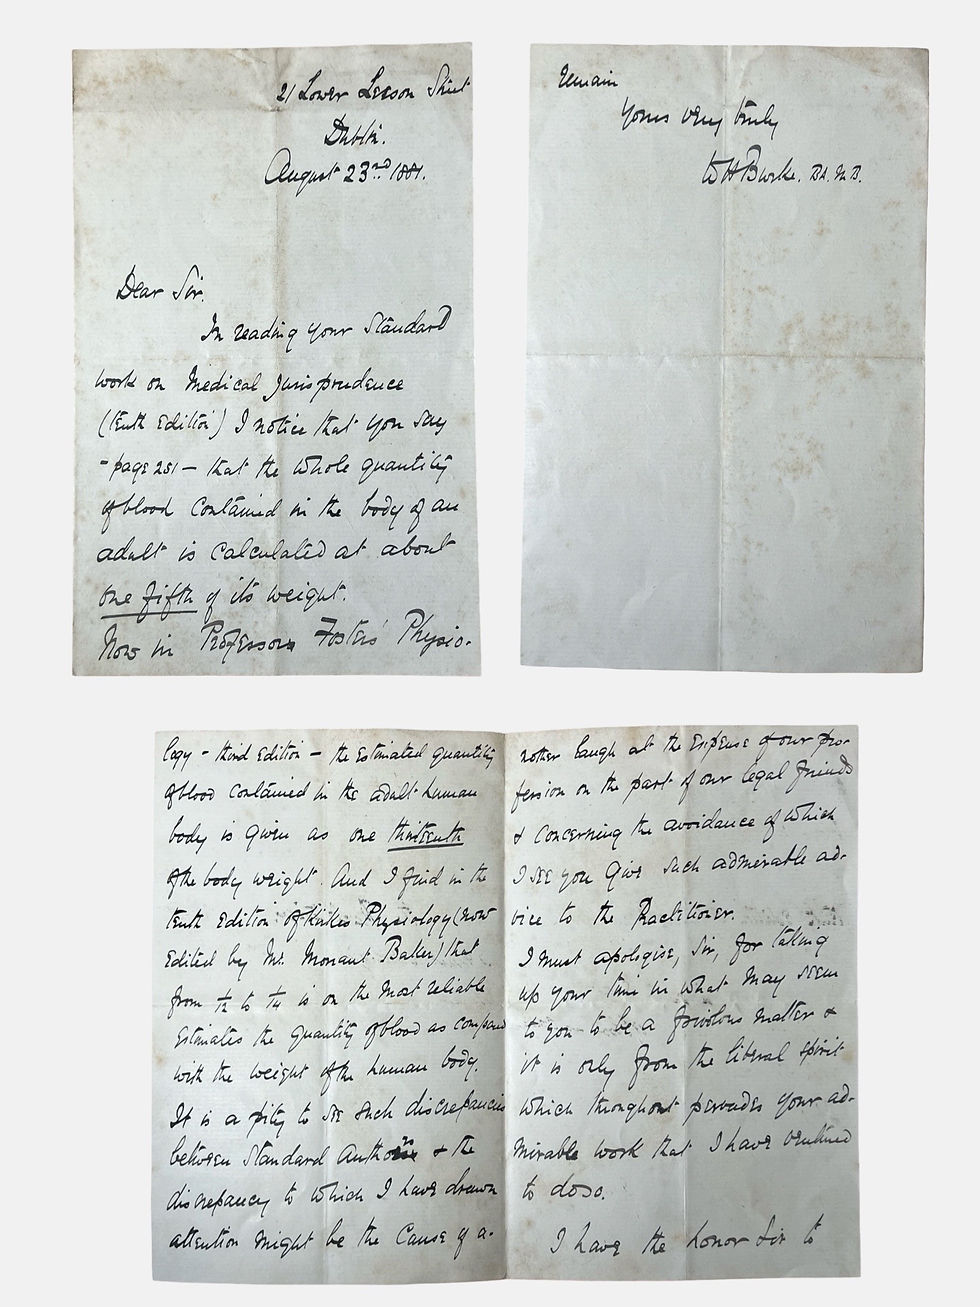 21 Lower Leeson Street
Dublin.
August 23rd 1881.
Dear Sir.
In reading your Standard
work on Medical Jurisprudence
(tenth Edition) I notice that you say
- page 281 - that the whole quantity
of blood contained in the body of an
adult is calculated at about
one fifth of its weight.
Now in Professor Fosters' Physio-
logy - third Edition - the Estimated quantity
of blood contained in the adult human
body is given as one thirteenth
of the body weight. And I find in the
tenth Edition of Kirkes Physiology (now
Edited by Mr. Morrant Baker) that
from 1/12 to 1/14 is on the most reliable
Estimates the quantity of blood as compared
with the weight of the human body.
It is a pity to see such discrepancies
between Standard Authors & the
discrepancy to which I have drawn
attention might be the Cause of a-
nother laugh at the Expense of our pro-
fession on the part of our legal friends
& concerning the avoidance of which
I see you give such admirable ad-
vice to the Practitioner.
I must apologise, Sir, for taking
up your time in what may seem
to you to be a frivolous matter &
it is only from the liberal spirit
which throughout pervades your ad-
mirable work that I have ventured
to do so.
I have the honor Sir to
remain
Yours very truly
W H Burke. BA. M.B.